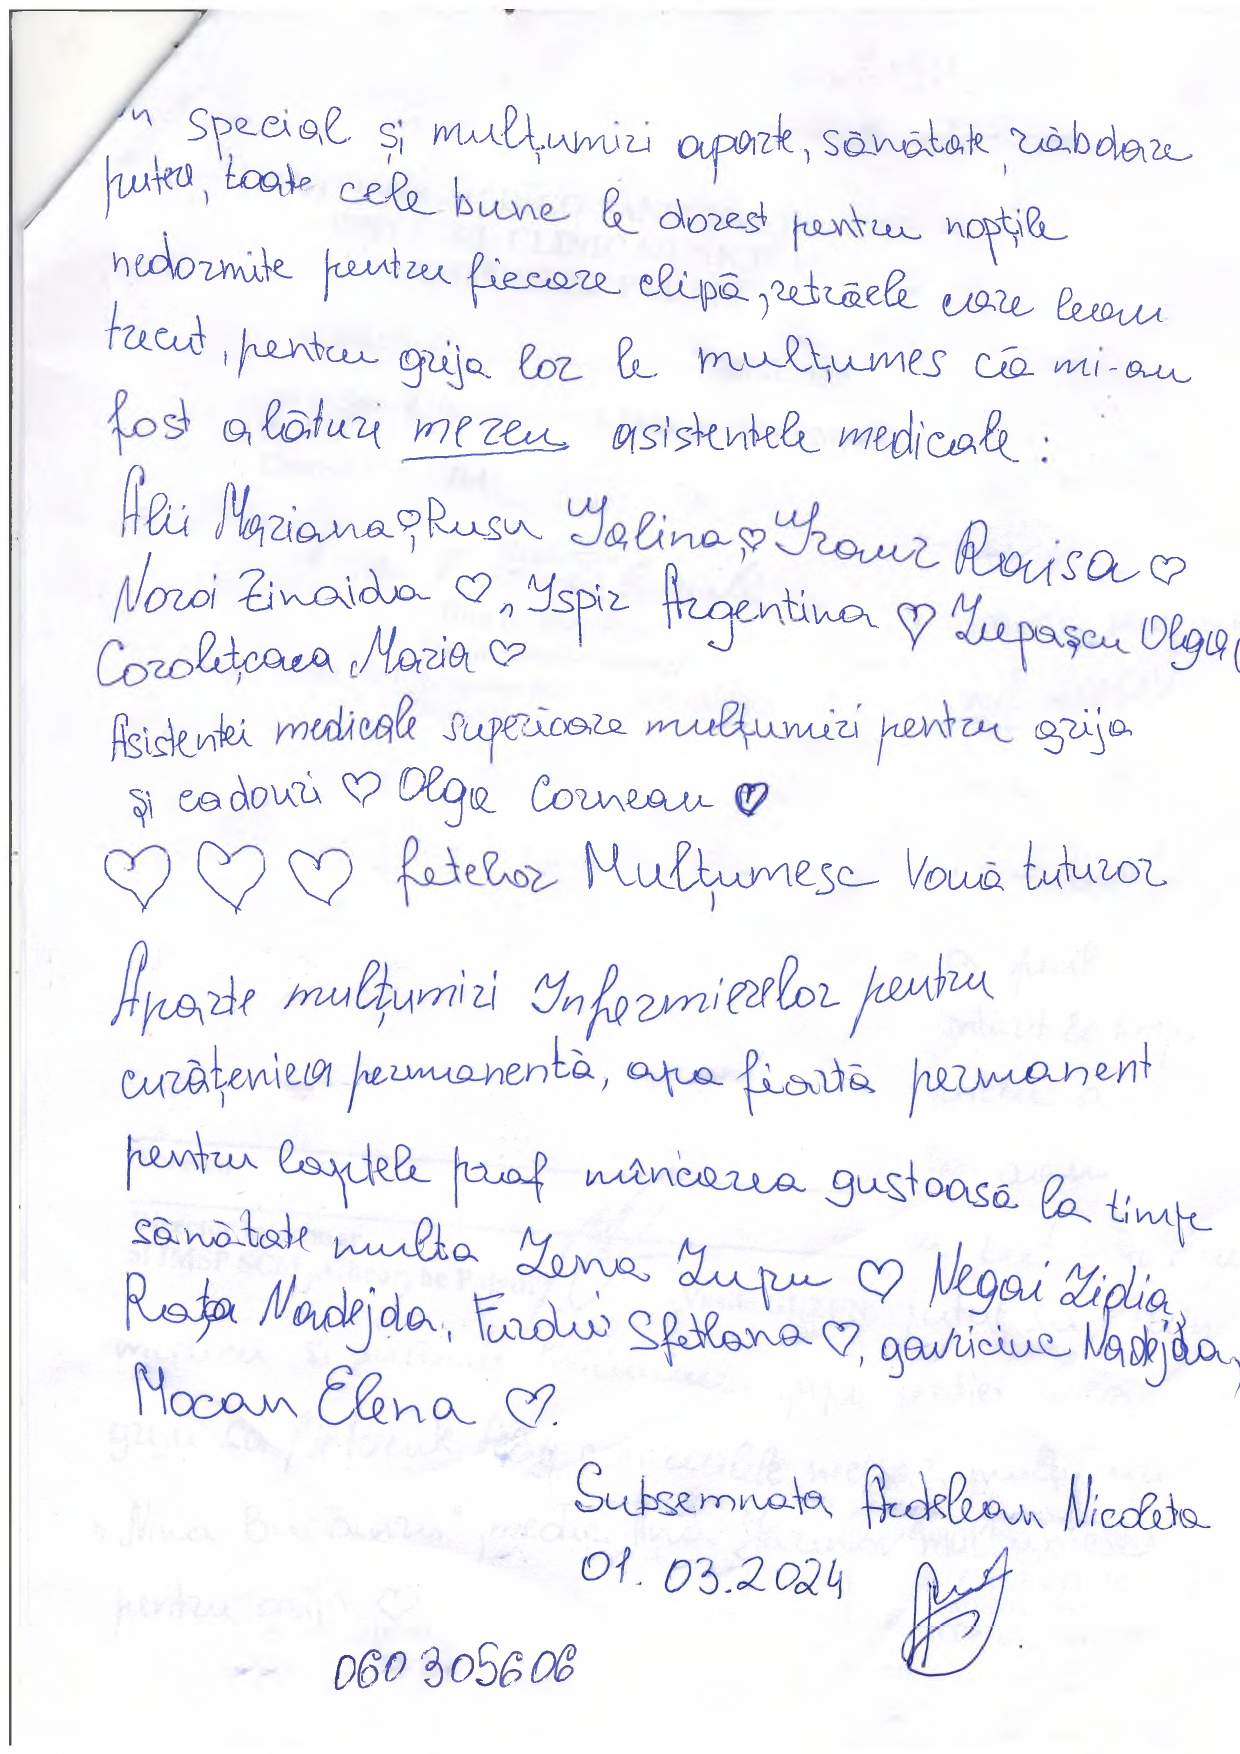 în special și mulțumiri aparte, sănătate, răbdare
putere, toate cele bune le doresc pentru nopțile
nedormite pentru fiecare clipă, retrăele care leau
trecut, pentru grija lor le mulțumes că mi-au
fost alături mereu asistentele medicale :
Alii Mariana ♡, Rusu Galina, ♡ Graur Raisa ♡
Noroi Zinaida ♡, Ispir Argentina ♡ Lupașcu Olga
Corolețcaea, Maria ♡
Asistentei medicale superioare mulțumiri pentru grija
și cadouri ♡ Olga Cornean ♡
♡ ♡ ♡ fetelor Mulțumesc Vouă tuturor
Aparte mulțumiri Infermierelor pentru
curățeniea permanentă, apa fiartă permanent
pentru laptele praf mîncarea gustoasă la timp
sănătate multa Lena Lupu ♡ Negai Lidia,
Rața Nadejda, Furdui Sfetlana ♡, gavriciuc Nadejda,
Mocan Elena ♡.
Subsemnata Ardelean Nicoleta
01. 03.2024
060305606